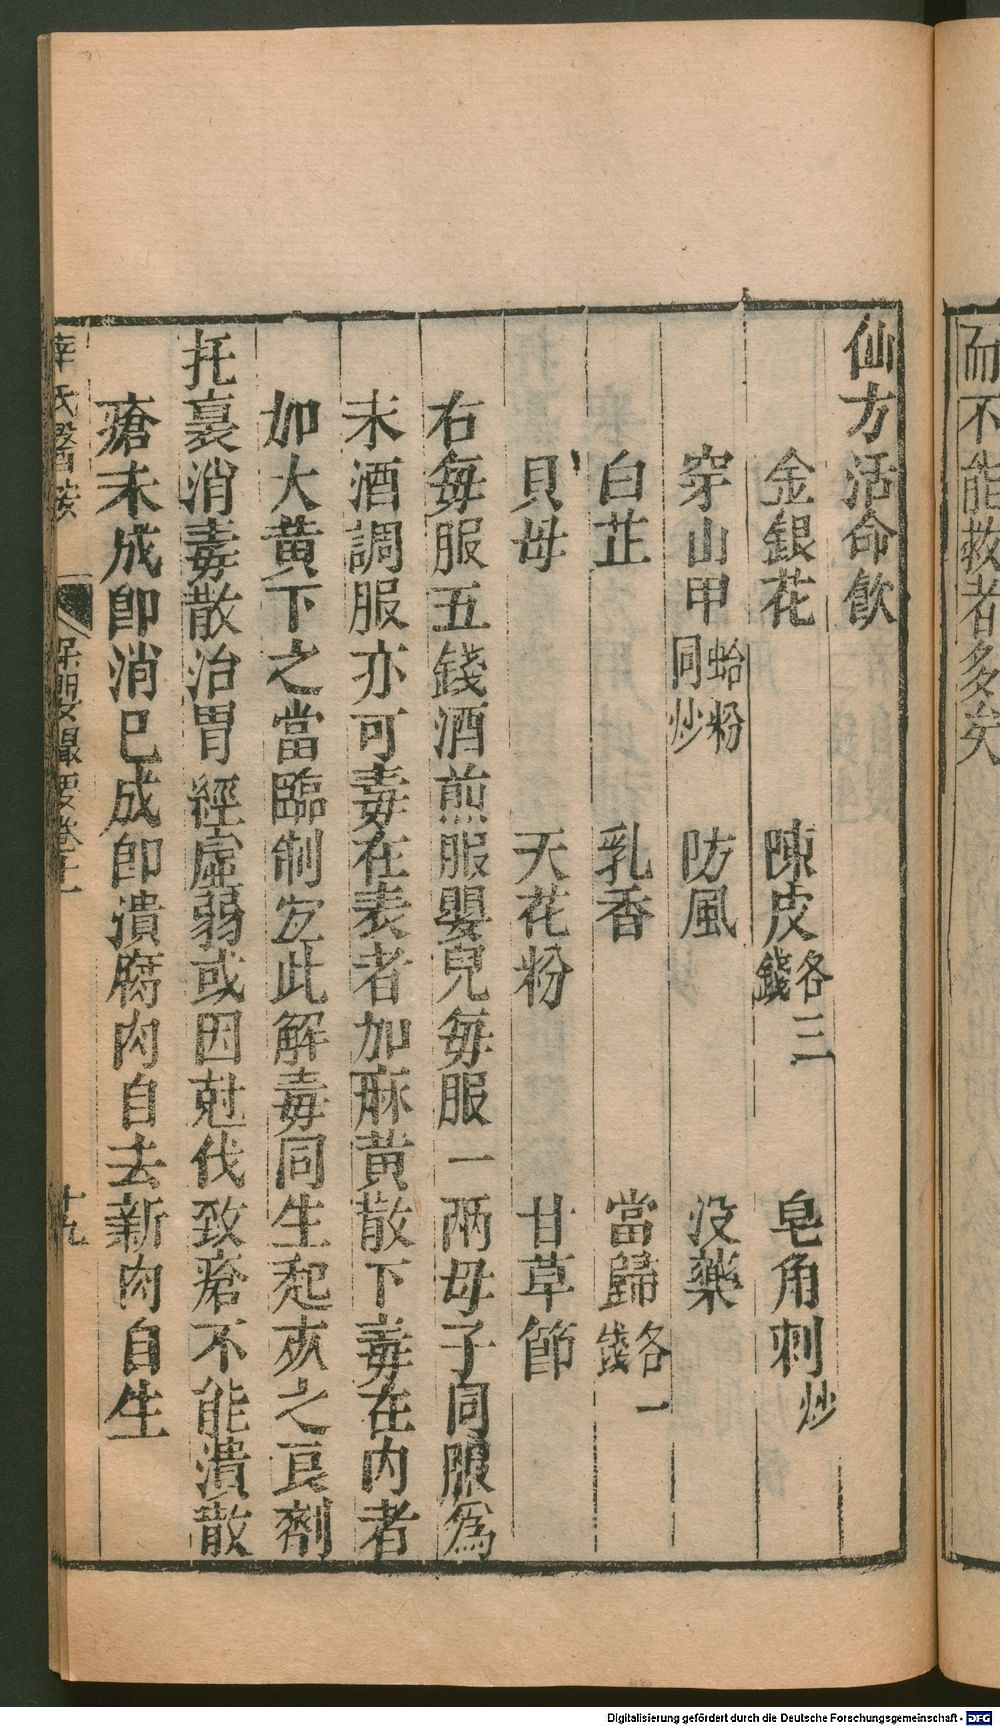 而不能救者多矣
仙方活命飲
金銀花　陳皮各三錢　皂角刺炒
穿山甲蛤粉同炒　防風　沒藥
白芷　乳香　當歸各一錢
貝母　天花粉　甘草節
右每服五錢酒煎服嬰兒每服一兩母子同服爲
末酒調服亦可毒在表者加麻黃散下毒在內者
加大黃下之當臨制宐此解毒同生起死之良劑
托裏消毒散治胃經虛弱或因尅伐致瘡不能潰散
瘡未成卽消已成卽潰腐肉自去新肉自生
薛氏醫案　保嬰撮要卷十一　十九
Digitalisierung gefördert durch die Deutsche Forschungsgemeinschaft - DFG